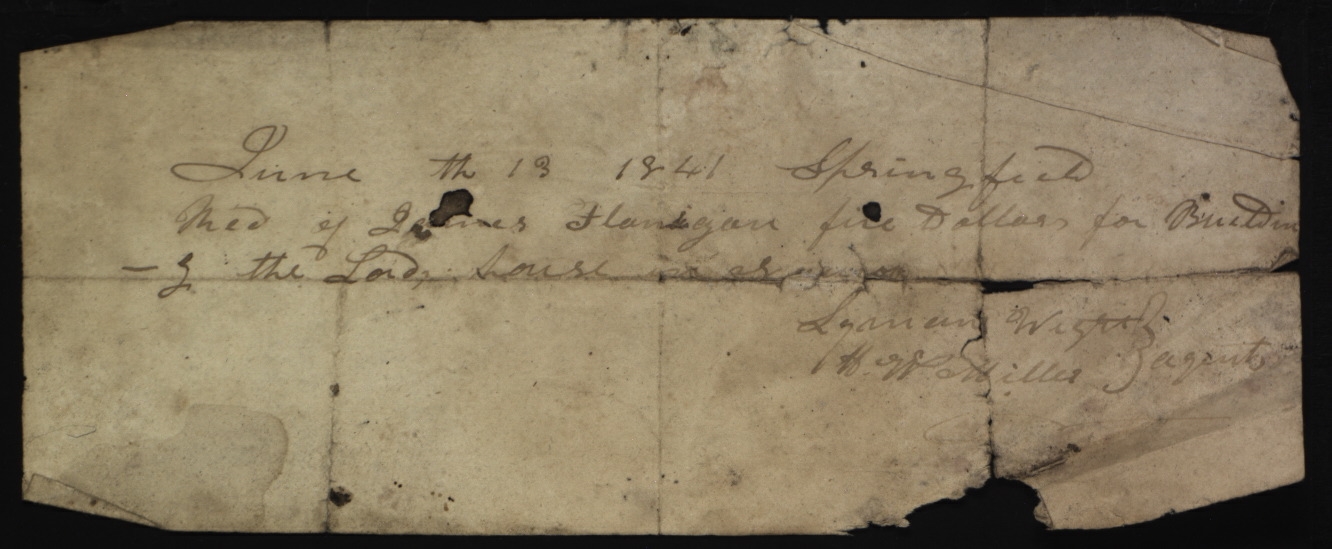 June th 13 1841 Springfield
Recd of James Flanigan five Dollars for Buildin
- g the Lords house in
Lyman Wight
H. W. Miller } agents